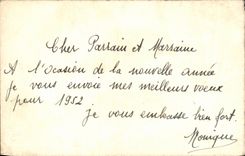 Cher Parrain et Marraine
A l'ocasion de la nouvelle année
je vous envoie mes meilleurs voeux
pour 1952
je vous embasse bien fort.
Monique